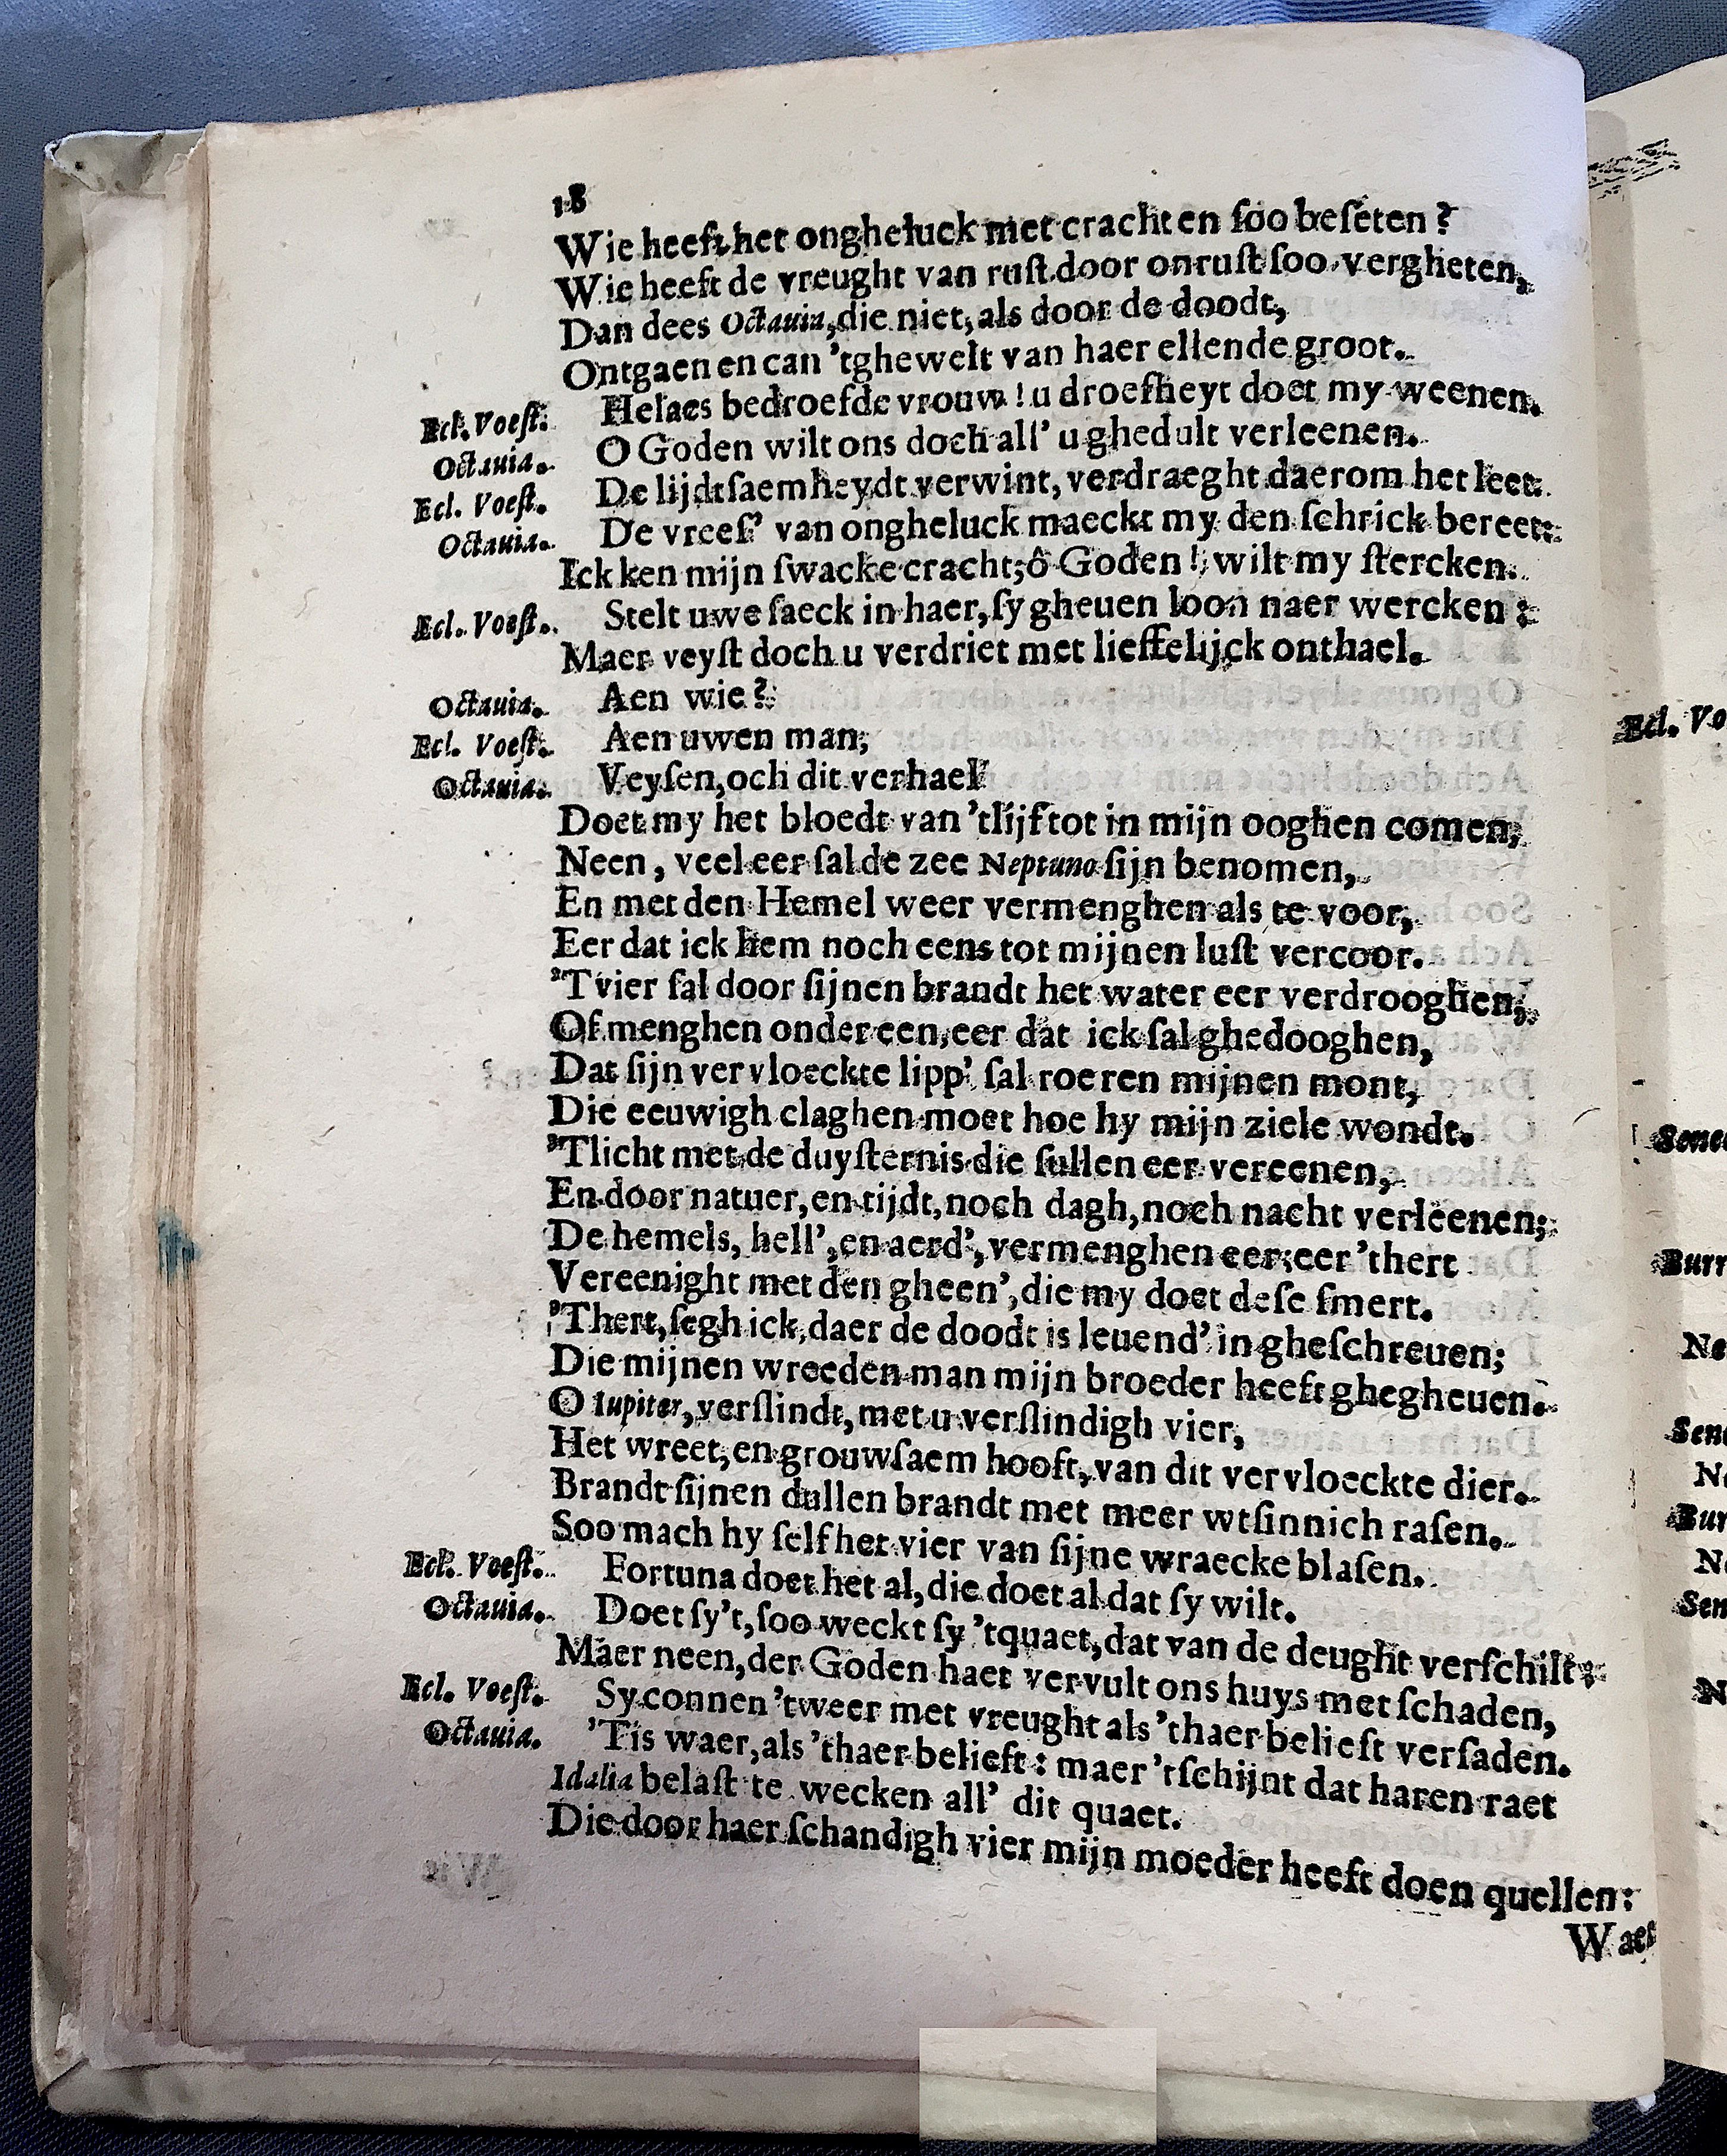 18
Wie heeft het ongheluck met cracht en ſoo beſeten?
Wie heeft de vreught van ruſt door onruſt ſoo vergheten,
Dan dees Octauia, die niet, als door de doodt,
Ontgaen en can 'tghewelt van haer ellende groot.
Ecl. Voeſt. Helaes bedroefde vrouw! u droefheyt doet my weenen.
Octauia. O Goden wilt ons doch all' u ghedult verleenen.
Ecl. Voeſt. De lijdtſaemheydt verwint, verdraeght daerom het leet.
Octauia. De vreeſ' van ongheluck maeckt my den ſchrick bereet:
Ick ken mijn ſwacke cracht; ô Goden! wilt my ſtercken.
Ecl. Voeſt. Stelt uwe ſaeck in haer, ſy gheuen loon naer wercken:
Maer veyſt doch u verdriet met lieffelijck onthael.
Octauia. Aen wie?
Ecl. Voeſt. Aen uwen man;
Octauia. Veyſen, och dit verhael
Doet my het bloedt van 'tlijf tot in mijn ooghen comen;
Neen, veel eer ſal de zee Neptuno ſijn benomen,
En met den Hemel weer vermenghen als te voor,
Eer dat ick hem noch eens tot mijnen luſt vercoor.
'Tvier ſal door ſijnen brandt het water eer verdrooghen,
Of menghen onder een, eer dat ick ſal ghedooghen,
Dat ſijn vervloeckte lipp' ſal roeren mijnen mont,
Die eeuwigh claghen moet hoe hy mijn ziele wondt.
'Tlicht met de duyſternis die ſullen eer vereenen,
En door natuer, en tijdt, noch dagh, noch nacht verleenen;
De hemels, hell', en aerd', vermenghen eer; eer 'thert
Vereenight met den gheen', die my doet deſe ſmert.
'Thert, ſegh ick, daer de doodt is leuend' in gheſchreuen;
Die mijnen wreeden man mijn broeder heeft ghegheuen.
O Iupiter, verſlindt, met u verſlindigh vier,
Het wreet, en grouwſaem hooft, van dit vervloeckte dier.
Brandt ſijnen dullen brandt met meer wtſinnich raſen.
Soo mach hy ſelf het vier van ſijne wraecke blaſen.
Ecl. Voeſt. Fortuna doet het al, die doet al dat ſy wilt.
Octauia. Doet ſy't, ſoo weckt ſy 'tquaet, dat van de deught verſchilt:
Maer neen, der Goden haet vervult ons huys met ſchaden,
Ecl. Voeſt. Sy connen 'tweer met vreught als 'thaer belieft verſaden.
Octauia. 'Tis waer, als 'thaer belieft: maer 'tſchijnt dat haren raet
Idalia belaſt te wecken all' dit quaet.
Die door haer ſchandigh vier mijn moeder heeft doen quellen:
Waer
Ecl. Vo
Senec
Burr
Ne
Sene
Ne
Bur
Ne
Sen
N